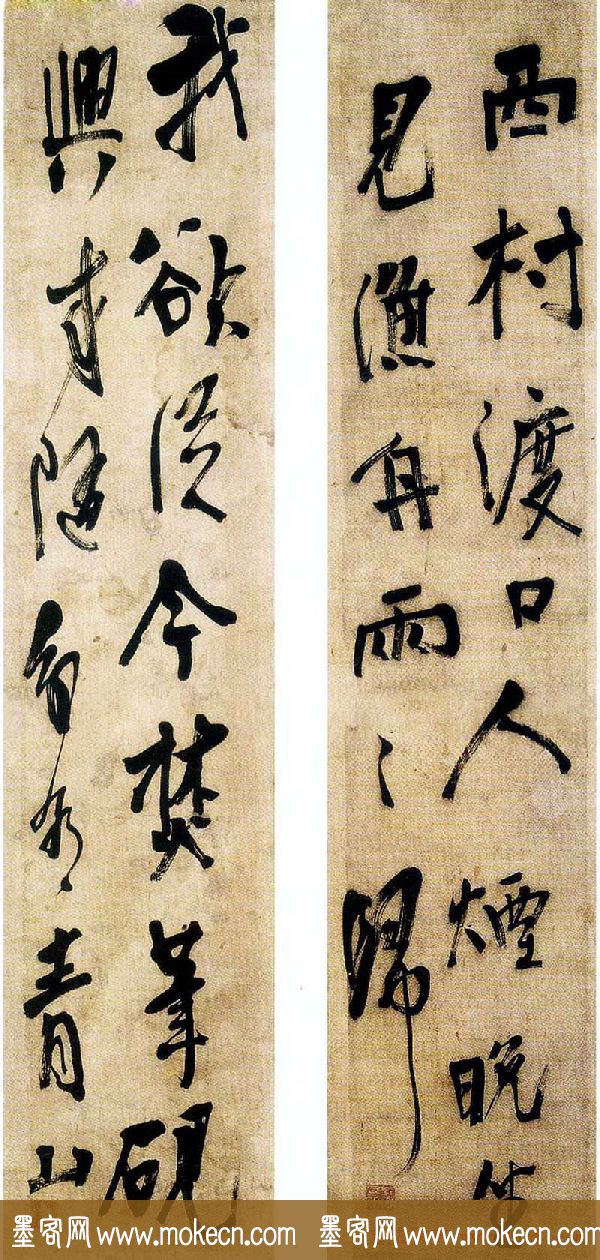 西村渡口人煙晚坐
見漁舟兩〻歸
我欲從今焚筆硯
興來隨青山
墨客网 www.mokecn.com 墨客网 www.mokecn.com